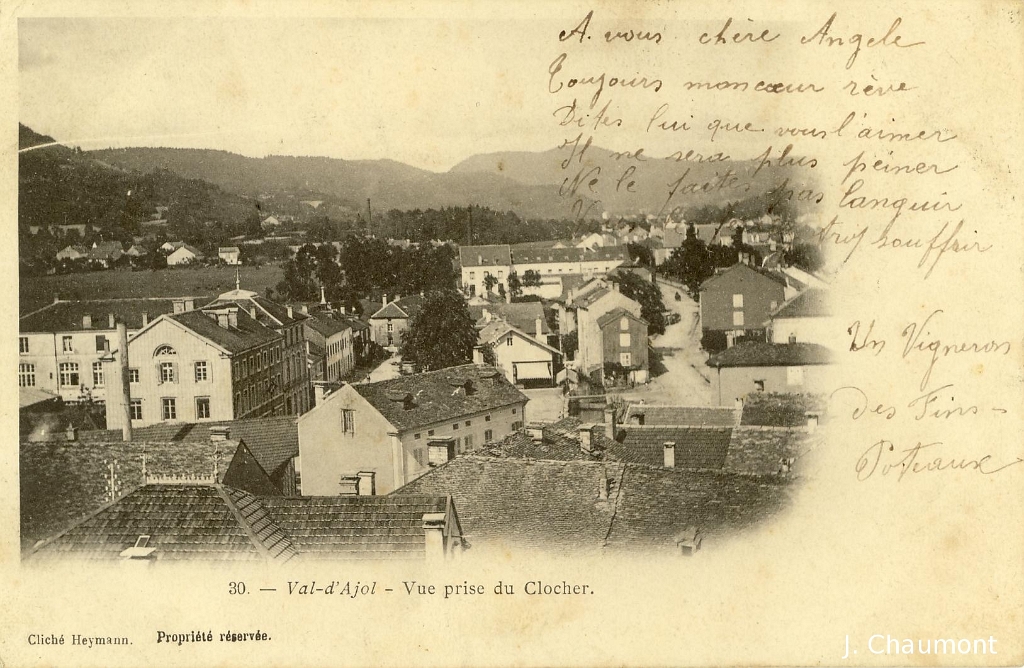 A vous chère Angele
Toujours mon cœur rève
Dites lui que vous l'aimer
Il ne sera plus peiner
Ne le faites pas languir
trop souffrir
Un Vigneron
des Fins-
Poteaux
30. — Val-d'Ajol - Vue prise du Clocher.
Cliché Heymann. Propriété réservée.
J. Chaumont